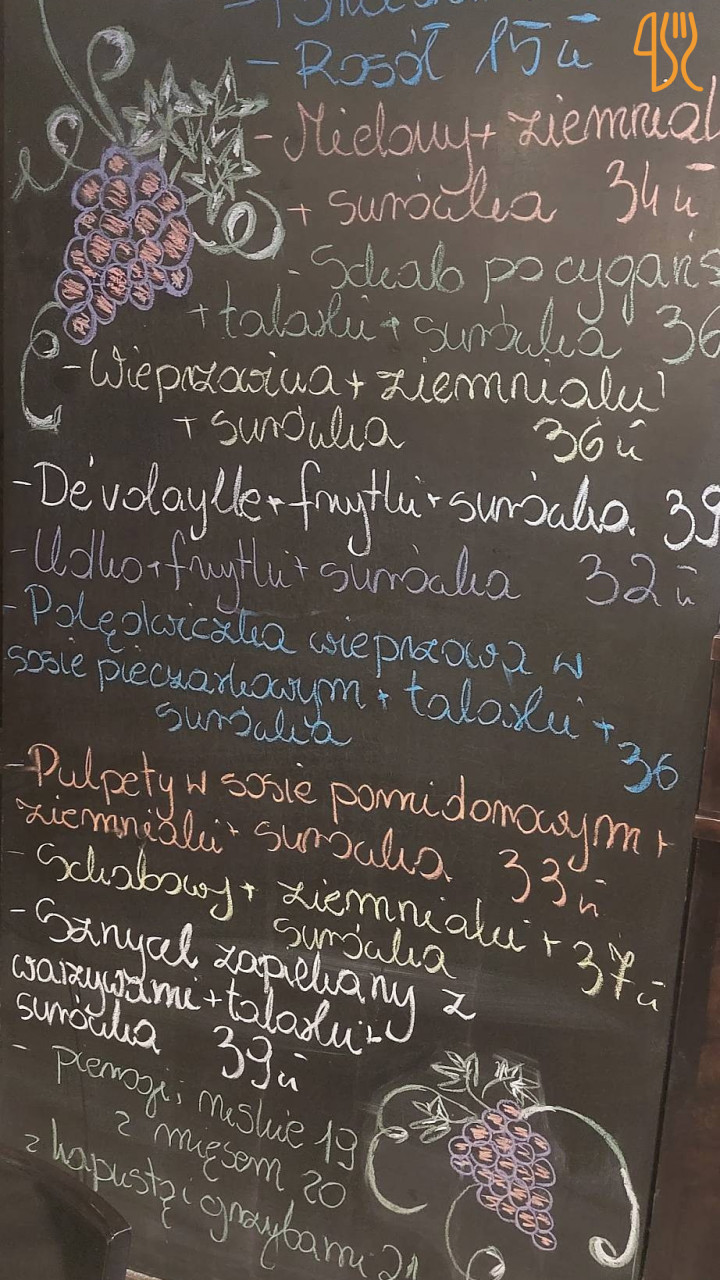 - Rosół 15 zł
- Mielony + ziemniak
+ surówka 34 zł
- Schab po cygańs
+ talarki + surówka 36
- Wieprzowina + ziemniaki
+ surówka 36 zł
- De'volaylle + frytki + surówka 39
- Udko + frytki + surówka 32 zł
- Polędwiczka wieprzowa w
sosie pieczarkowym + talarki +
surówka 36
- Pulpety w sosie pomidorowym +
ziemniaki + surówka 33 zł
- Schabowy + ziemniaki +
surówka 37 zł
- Sznycel zapiekany z
warzywami + talarki +
surówka 39 zł
- pierogi; ruskie 19
z mięsem 20
z kapustą i grzybami 21